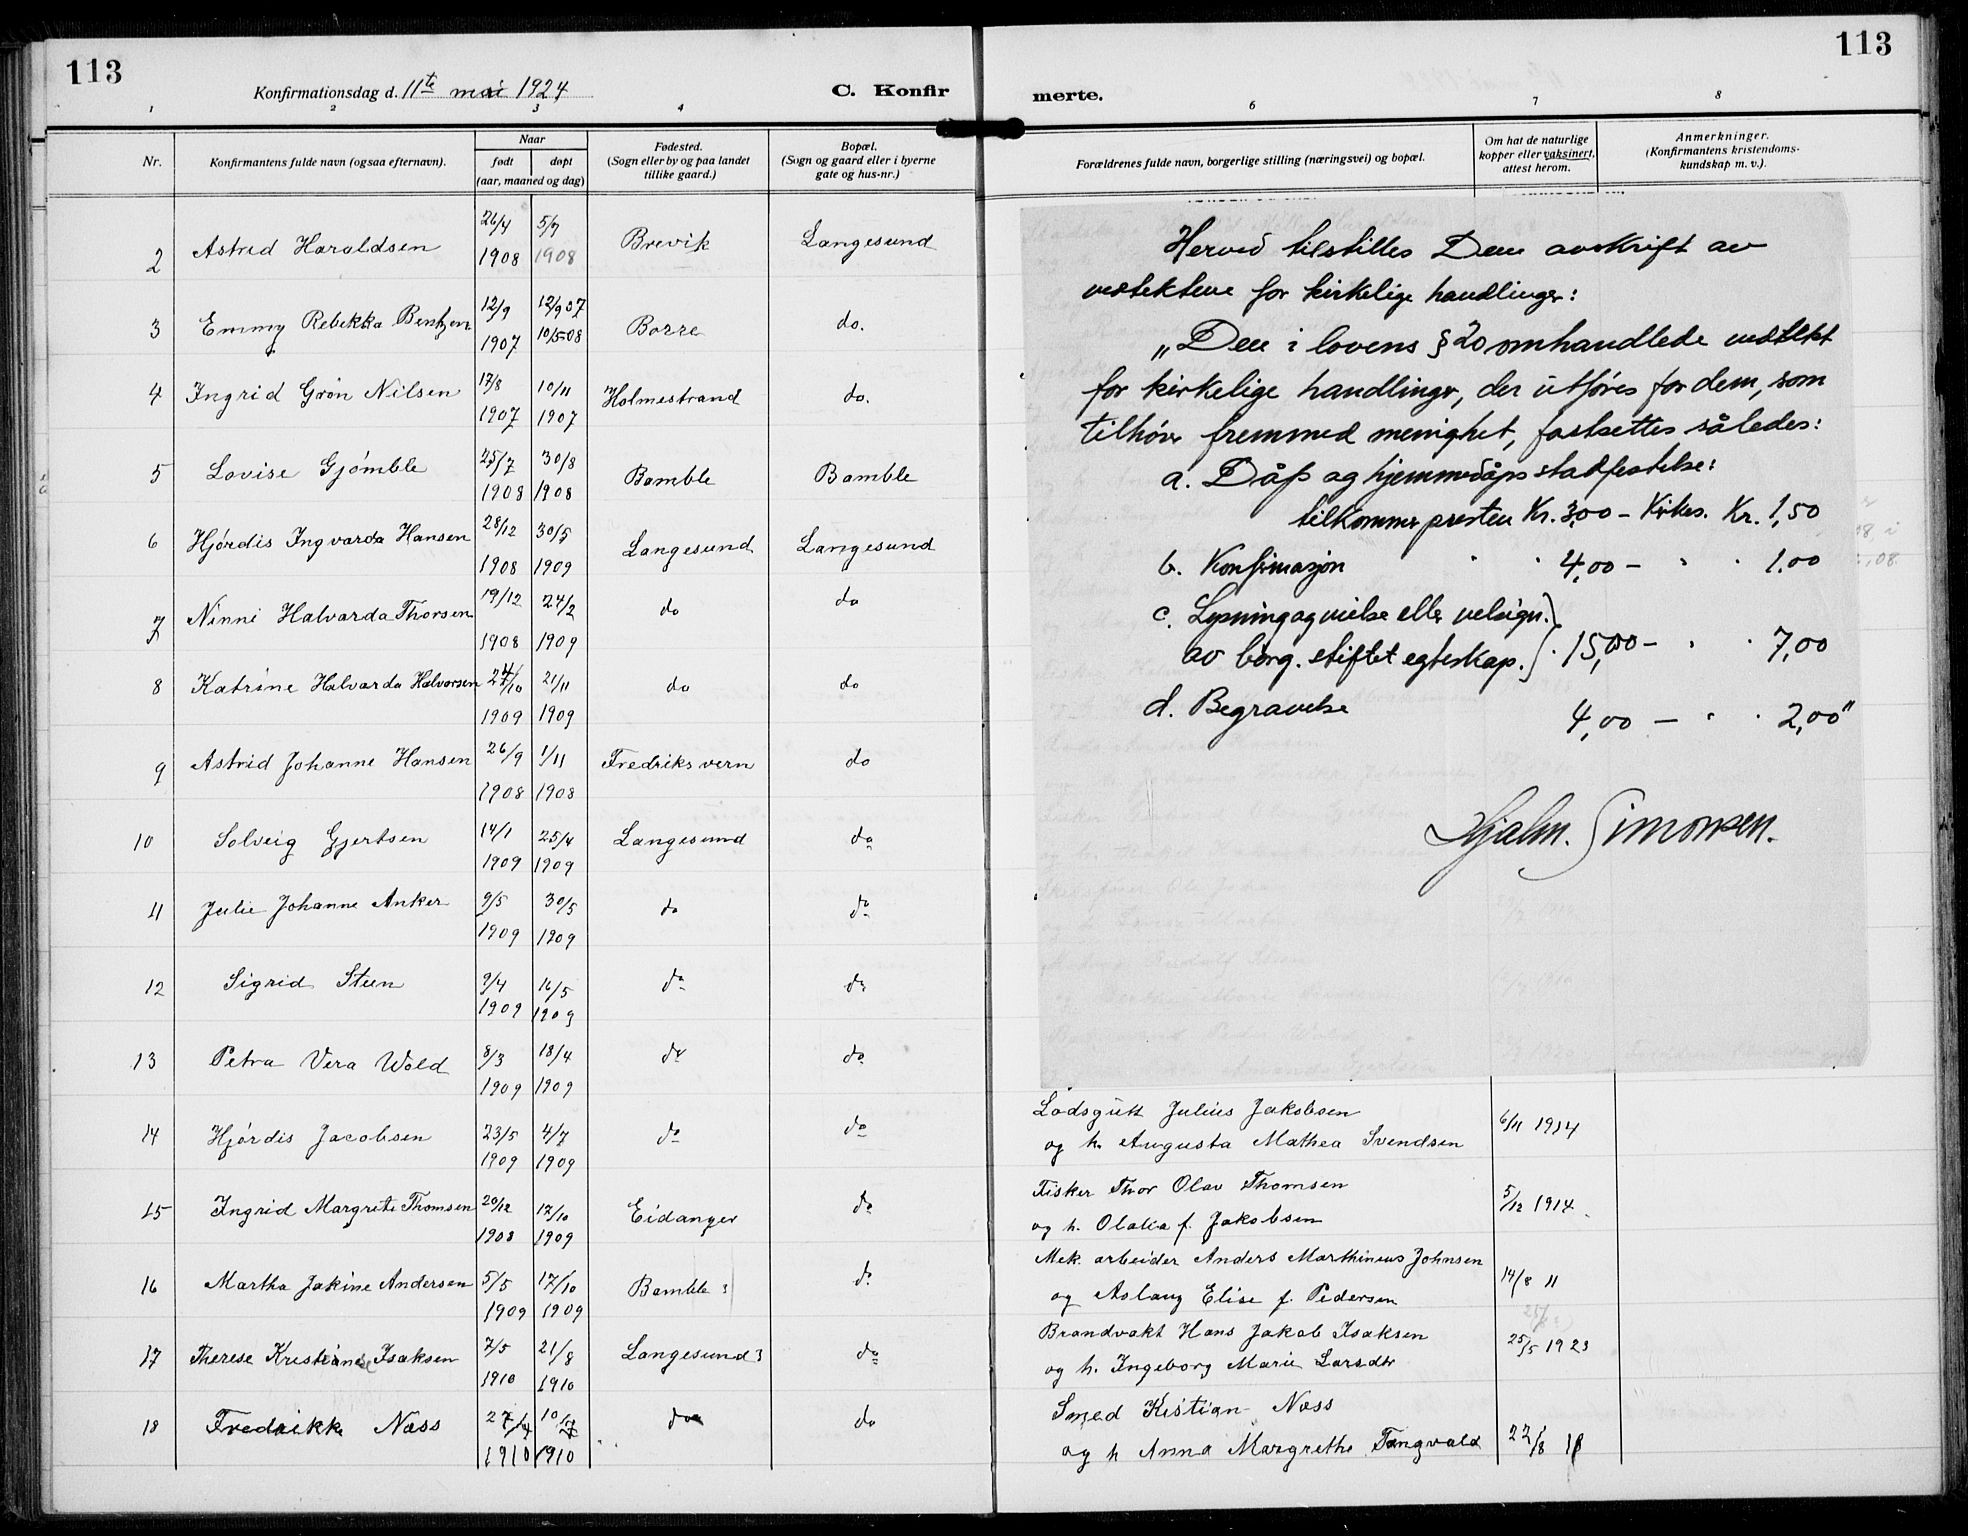 113
Konfirmationsdag d. 11te mai 1924
C. Konfir
1 2 3 4
Nr.
Konfirmantens fulde navn (ogsaa efternavn).
Naar
født
døpt
(aar, maaned og dag)
Fødested.
(Sogn eller by og paa landet
tillike gaard.)
Bopæl.
(Sogn og gaard eller i byerne
gate og hus-nr.)
2 Astrid Haraldsen 26/4 1908 5/7 1908 Brevik Langesund
3 Emmy Rebekka Bentzen 12/9 1907 12/9 07 10/5 08 Borre do.
4 Ingrid Grön Nilsen 17/8 1907 10/11 1907 Holmestrand do.
5 Lovise Gjömble 25/7 1908 30/8 1908 Bamble Bamble
6 Hjördis Ingvarda Hansen 28/12 1908 30/5 1909 Langesund Langesund
7 Ninni Halvarda Thorsen 19/12 1908 24/2 1909 do do
8 Katrine Halvarda Halvorsen 24/10 1909 21/11 1909 do do
9 Astrid Johanne Hansen 26/9 1908 1/11 1908 Fredriksvern do
10 Solveig Gjertsen 14/1 1909 25/4 1909 Langesund do
11 Julie Johanne Anker 9/5 1909 30/5 1909 do do
12 Sigrid Steen 9/4 1909 16/5 1909 do do
13 Petra Vera Wold 8/3 1909 18/4 1909 do do
14 Hjördis Jacobsen 23/5 1909 4/7 1909 do do
15 Ingrid Margrete Thomsen 20/12 1908 17/10 1909 Eidanger do
16 Martha Jakine Andersen 5/5 1909 17/10 1909 Bamble do
17 Therese Kristiane Isaksen 7/5 1910 21/8 1910 Langesund do
18 Fredrikke Næss 1910 1910 do do
113
merte.
6 7 8
Forældrenes fulde navn, borgerlige stilling (næringsvei) og bopæl.
Om hat de naturlige
kopper eller vaksinert,
attest herom.
Anmerkninger.
(Konfirmantens kristendoms-
kundskap m. v.).
Herved tilstilles Dem avskrift av
vedtektene for kirkelige handlinger:
„Den i lovens § 20 omhandlede vedtekt
for kirkelige handlinger, der utföres for dem, som
tilhörer fremmed menighet, fastsettes således:
a. Dåp og hjemmedåps stadfestelse:
tilkommer presten Kr. 3,00 – Kirkes. Kr. 1,50
b. Konfirmasjon " " 4,00 – " " 1.00
c. Lysning og vielse eller velsign.
av borg. stiftet egteskap. " 15,00 – " " 7,00
d. Begravelse 4,00 – " " 2,00"
Hjalm. Simonsen.
Lodsgutt Julius Jakobsen
og h. Augusta Mathea Svendsen 6/11 1914
Fisker Thor Olav Thomsen
og h. Olalia f. Jakobsen 5/12 1914
Mek. arbeider Anders Marthinius Johnsen
og Aslaug Elise f. Pedersen 14/8 11
Brandvakt Hans Jakob Isaksen
og h. Ingeborg Marie Larsdtr 25/5 1923
Smed Kistian Næss
og h Anna Margrethe Tangvald 22/8